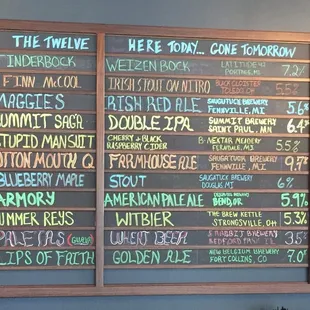 THE TWELVE
HERE TODAY... GONE TOMORROW
TINDERBOCK
WEIZEN BOCK
LATITUDE 42
PORTAGE, MI
7.2%
FINN McCOOL
IRISH STOUT ON NITRO
5.5%
MAGGIES
IRISH RED ALE
SAUGATUCK BREWERY
FENNVILLE, MI
5.6%
SUMMIT SAGA
DOUBLE IPA
SUMMIT BREWERY
SAINT PAUL, MN
6.4%
STUPID MANSUIT
CHERRY & BLACK
RASPBERRY CIDER
B. NEKTAR MEADERY
FERNDALE, MI
5.5%
COTTON MOUTH Q
FARMHOUSE ALE
SAUGATUCK BREWERY
FENNVILLE, MI
9.5%
BLUEBERRY MAPLE
STOUT
SAUGATUCK BREWERY
DOUGLAS MI
6%
ARMORY
AMERICAN PALE ALE
BREWING
BEND, OR
5.9%
SUMMER REYS
WITBIER
THE BREW KETTLE
STRONGSVILLE, OH
5.3%
WHEAT BEER
3.5%
LIPS OF FAITH
GOLDEN ALE
NEW BELGIUM BREWERY
FORT COLLINS, CO
7.0%